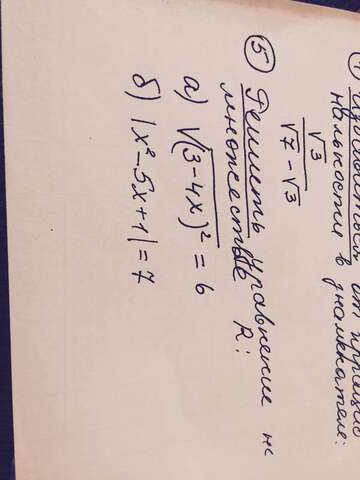 ④
нальности в знаменателе:
√3 / (√7 - √3)
⑤ Решить уравнение на
множестве R:
а) √(3-4x)² = 6
б) |x²-5x+1| = 7